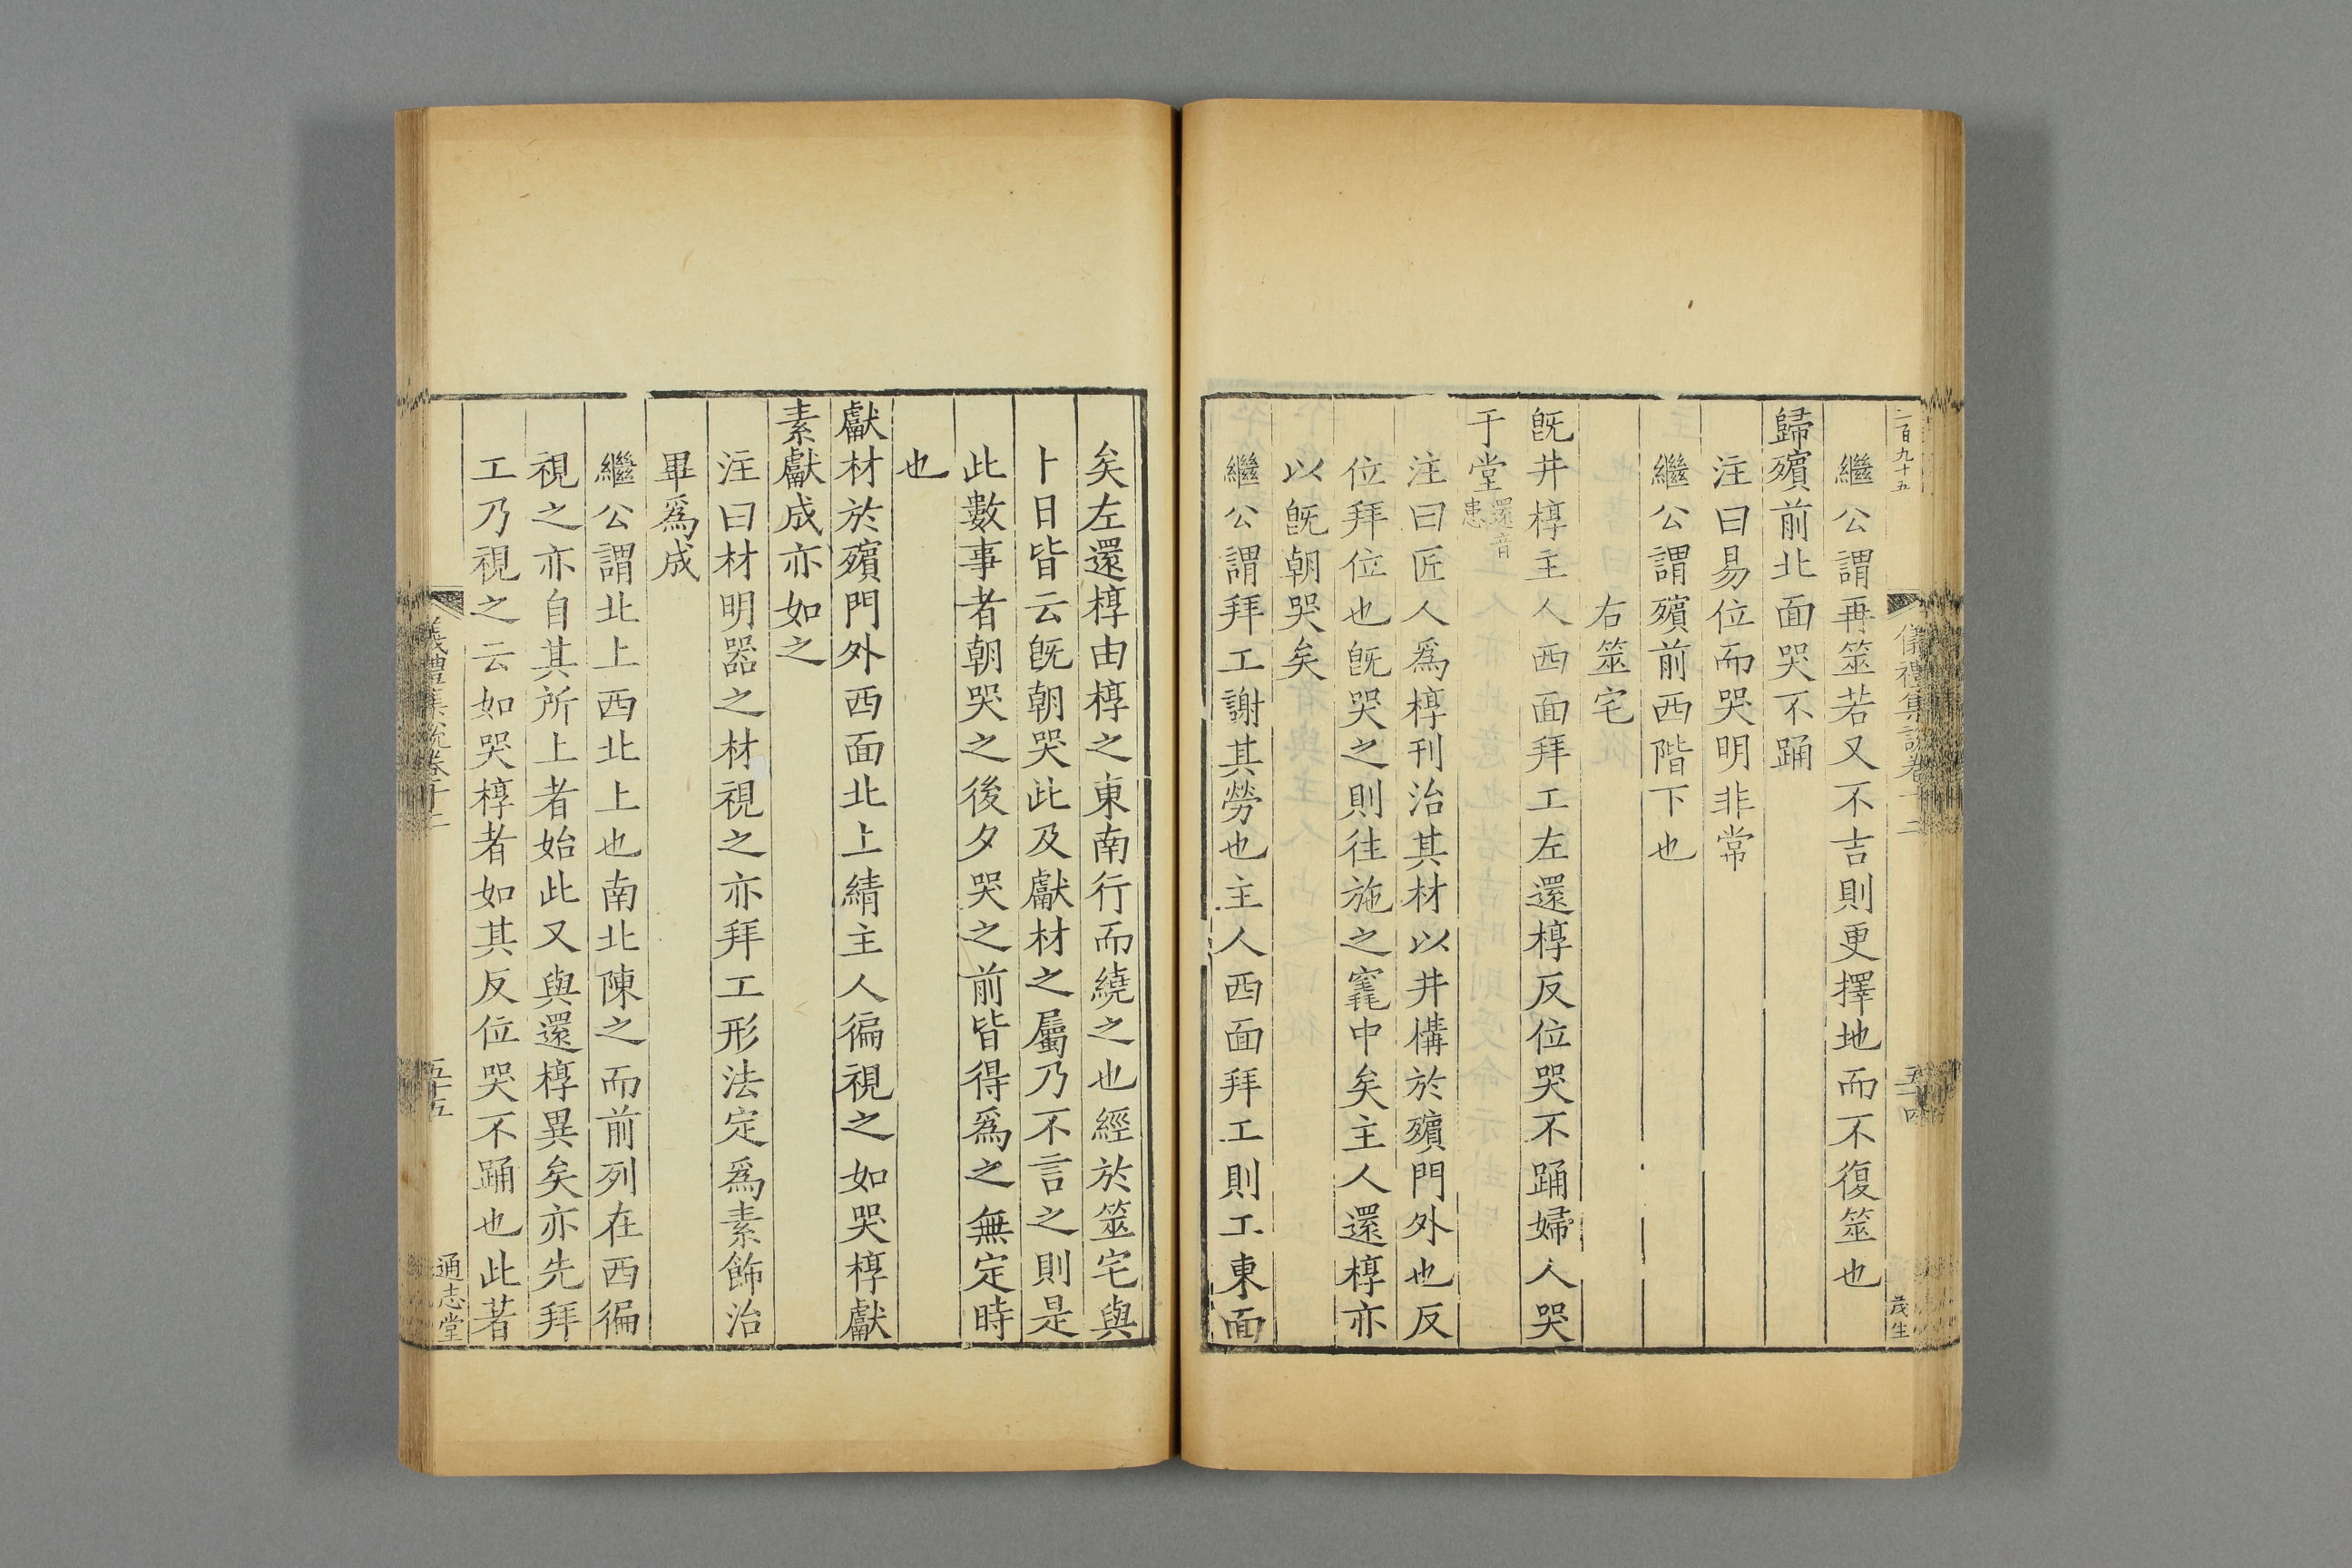 二百九十五
儀禮集說卷十二
五十四
茂生
繼公謂再筮若又不吉則更擇地而不復筮也
歸殯前北面哭不踊
注曰易位而哭明非常
繼公謂殯前西階下也
右筮宅
旣井椁主人西面拜工左還椁反位哭不踊婦人哭
于堂還音患
注曰匠人爲椁刊治其材以井構於殯門外也反
位拜位也旣哭之則往施之竁中矣主人還椁亦
以旣朝哭矣
繼公謂拜工謝其勞也主人西面拜工則工東面
矣左還椁由椁之東南行而繞之也經於筮宅與
卜日皆云旣朝哭此及獻材之屬乃不言之則是
此數事者朝哭之後夕哭之前皆得爲之無定時
也
獻材於殯門外西面北上綪主人徧視之如哭椁獻
素獻成亦如之
注曰材明器之材視之亦拜工形法定爲素飾治
畢爲成
繼公謂北上西北上也南北陳之而前列在西徧
視之亦自其所上者始此又與還椁異矣亦先拜
工乃視之云如哭椁者如其反位哭不踊也此著
儀禮集說卷十二
五十五
通志堂